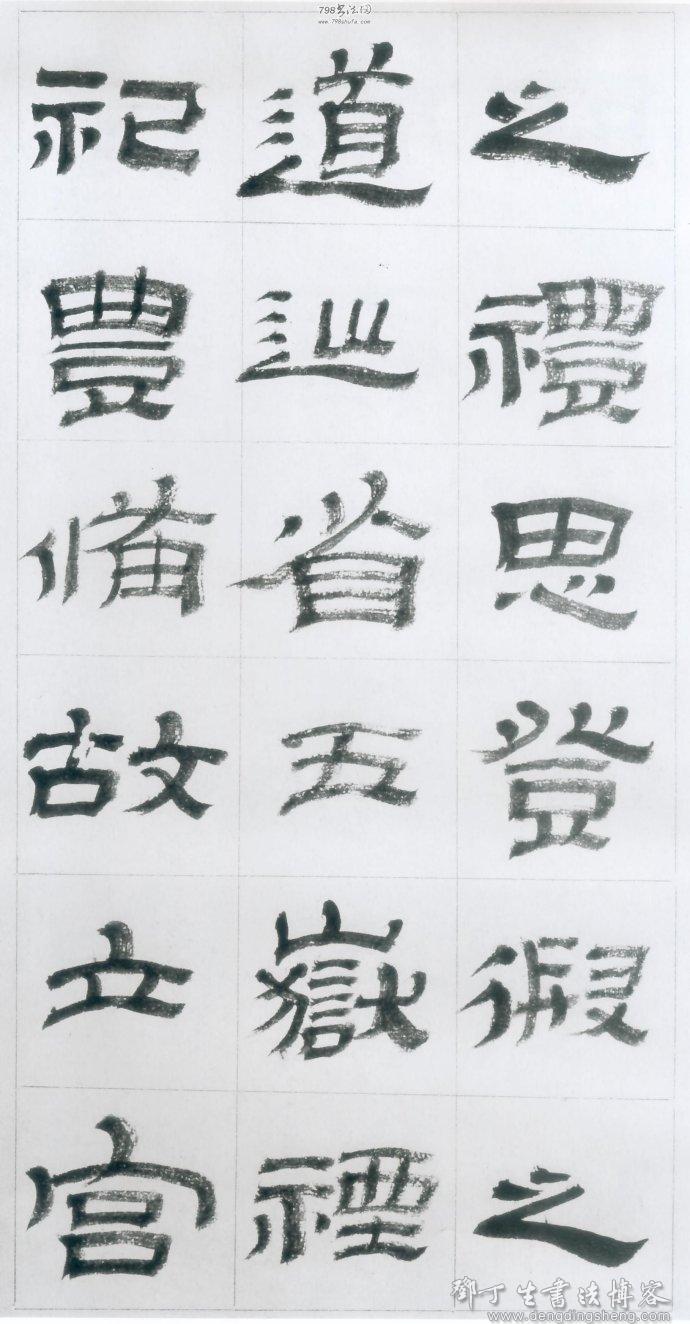 798书法网
www.798shufa.com
之禮思登徦之
道巡省五嶽禋
祀豊備故立宫
鄧丁生書法博客
www.dengdingsheng.com